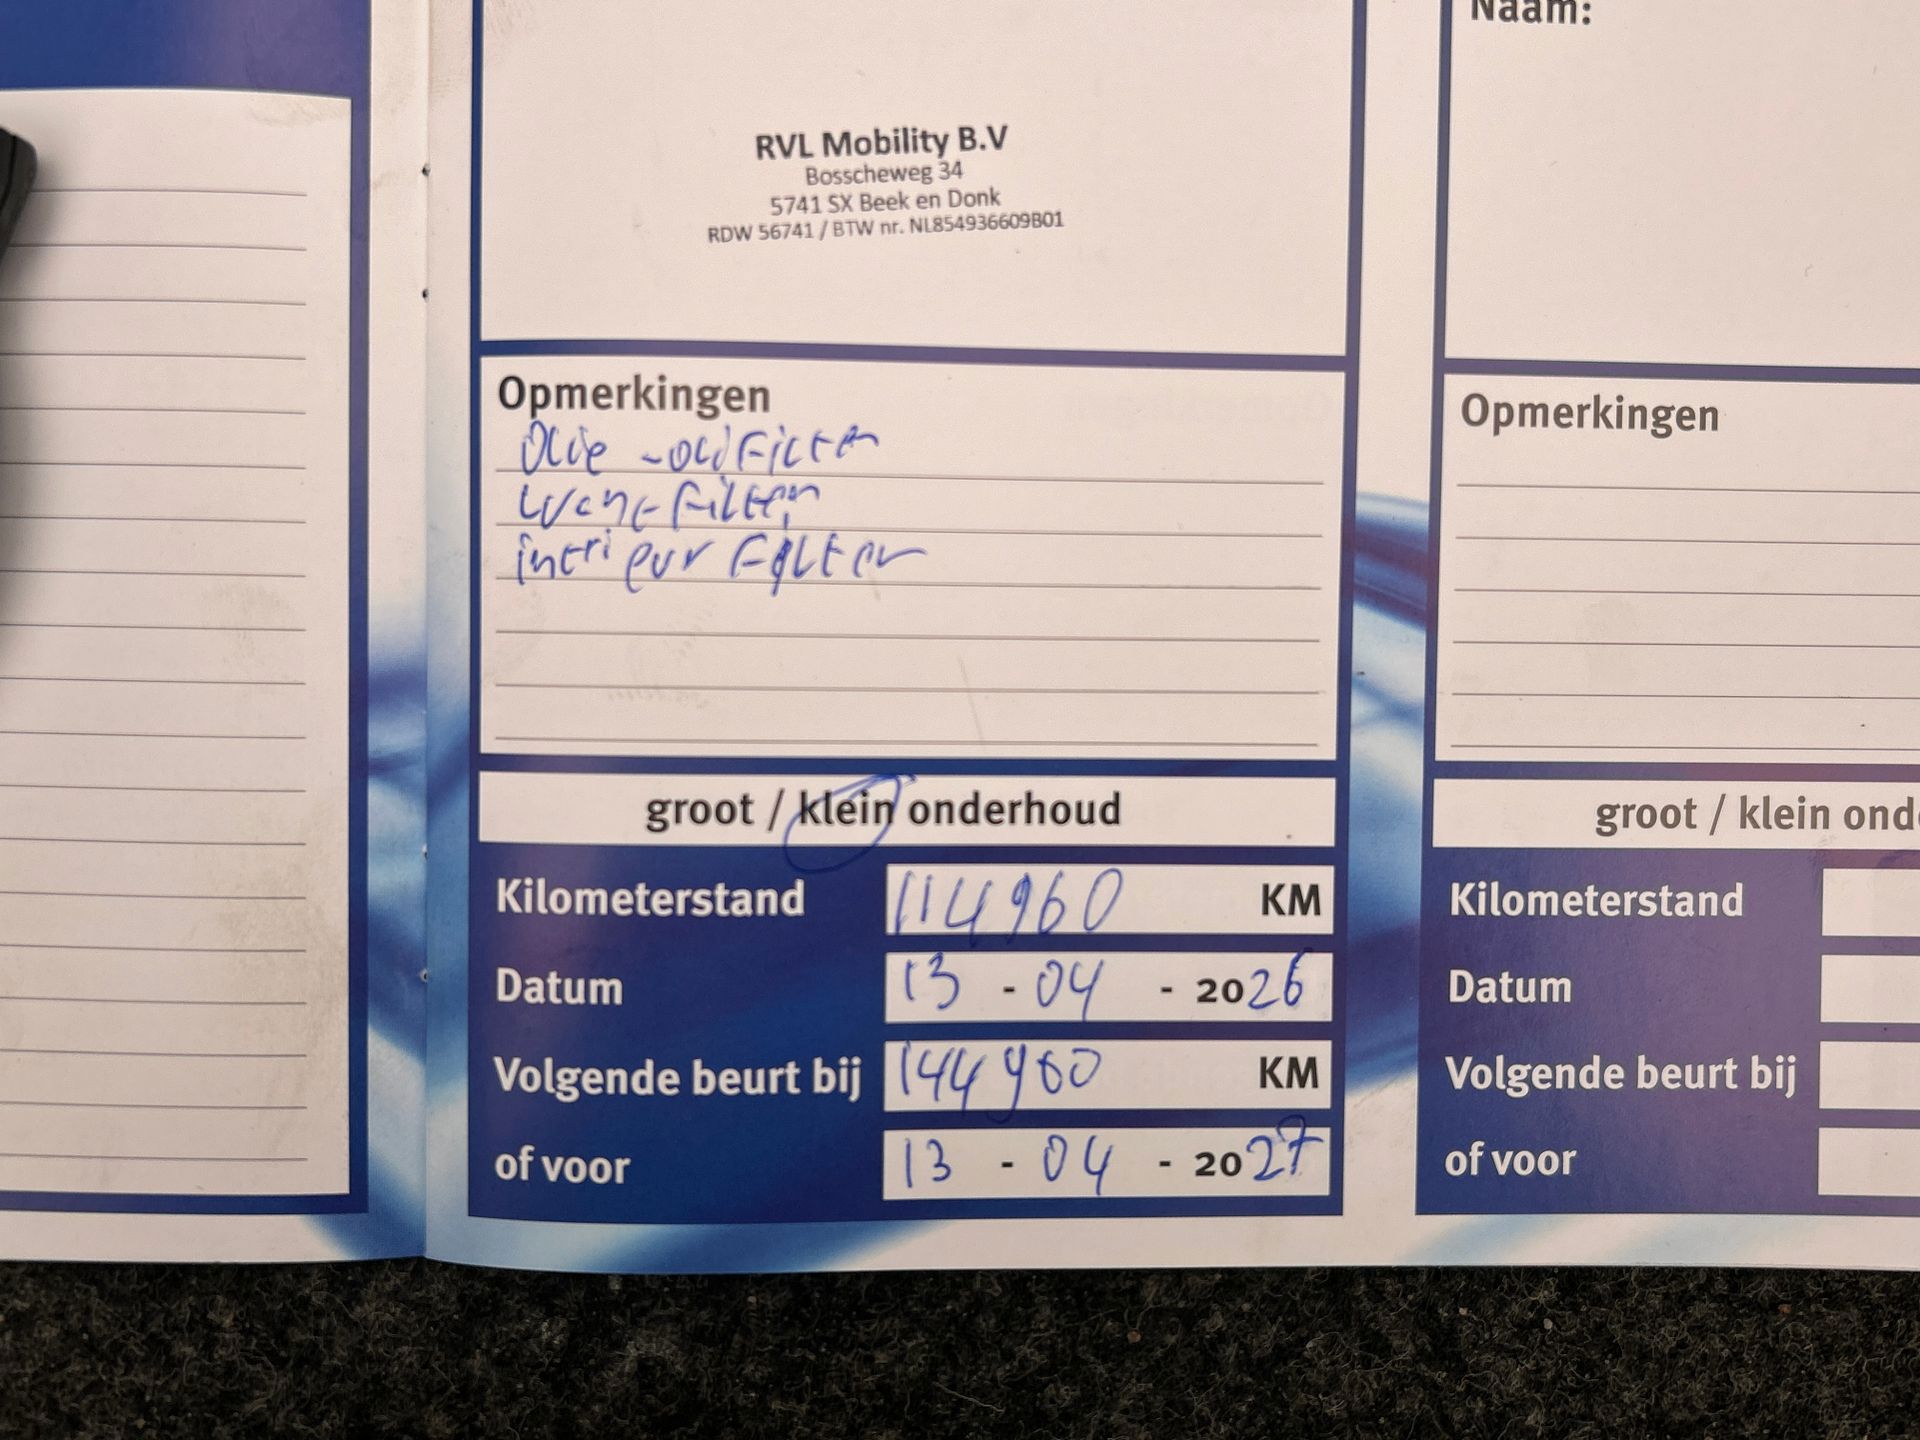 Naam:
RVL Mobility B.V
Bosscheweg 34
5741 SX Beek en Donk
RDW 56741 / BTW nr. NL854936609B01
Opmerkingen
Olie - oliefilter
filter
intrieur Filter
groot / klein onderhoud
Kilometerstand 114960 KM
Datum 13 - 04 - 2026
Volgende beurt bij 144960 KM
of voor 13 - 04 - 2027
Opmerkingen
groot / klein ond
Kilometerstand
Datum
Volgende beurt bij
of voor